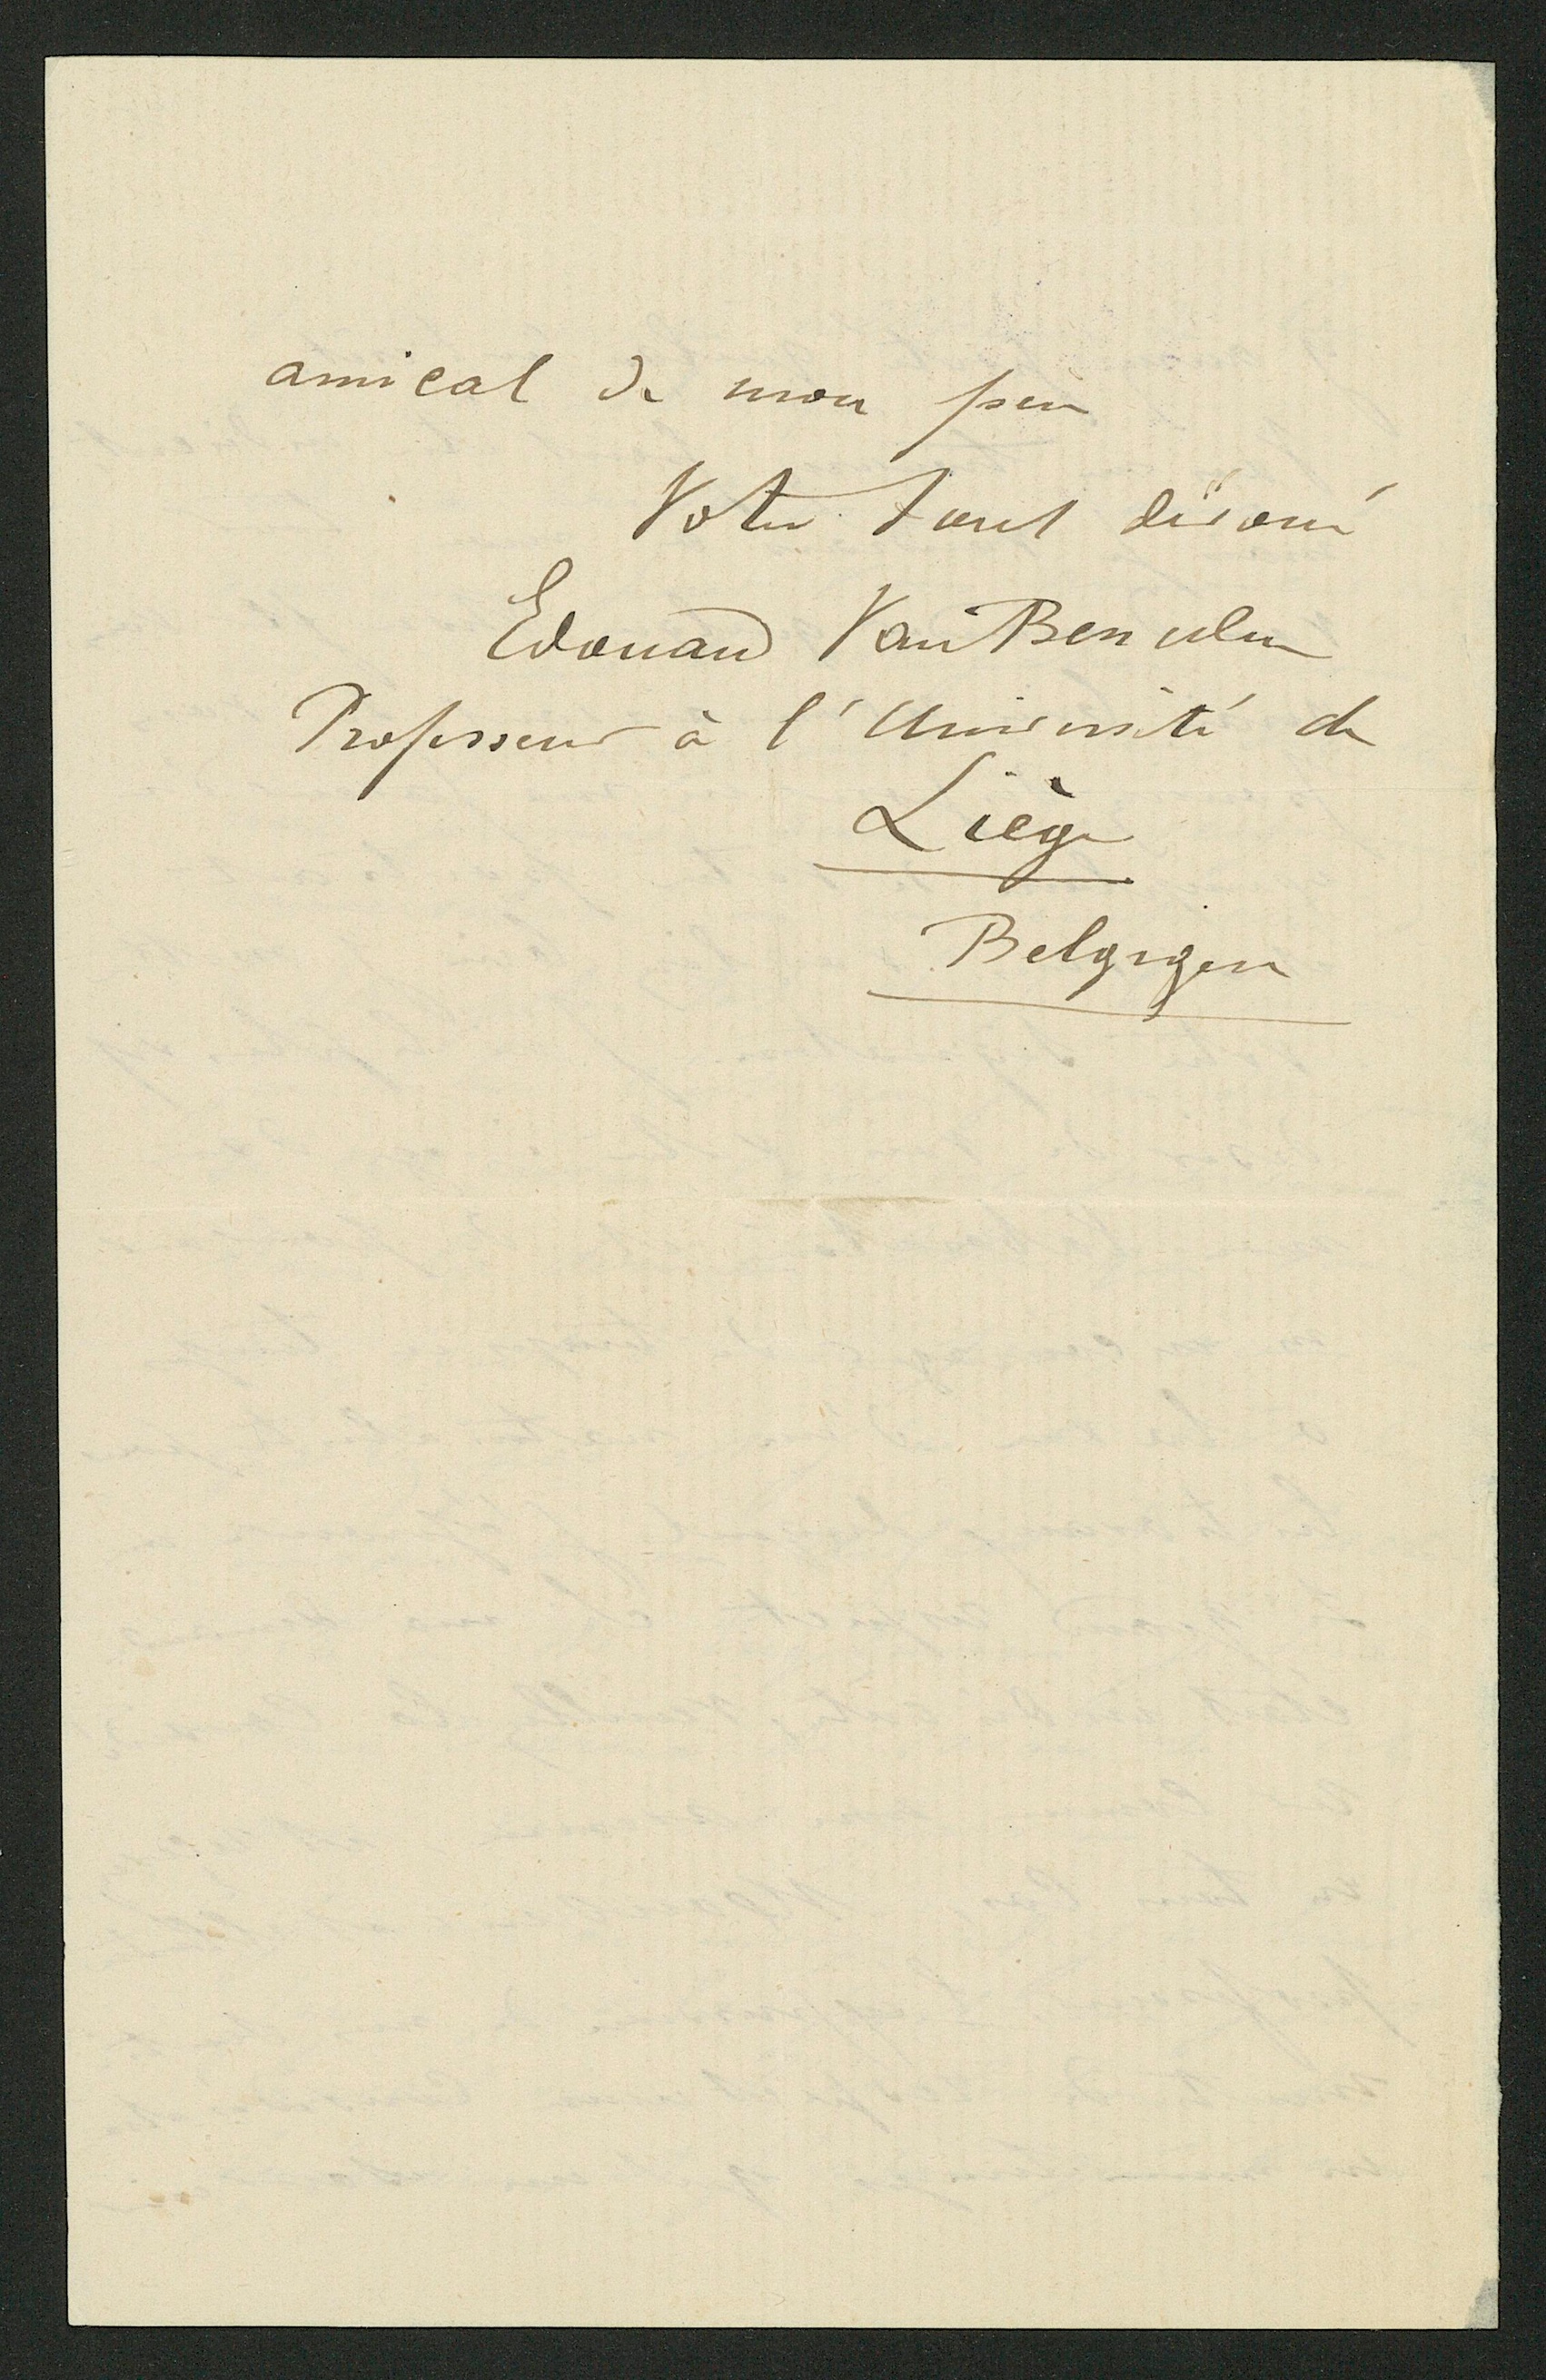 amical de mon père
Votre tout dévoué
Edouard Van Beneden
Professeur à l'Université de
Liège
Belgique